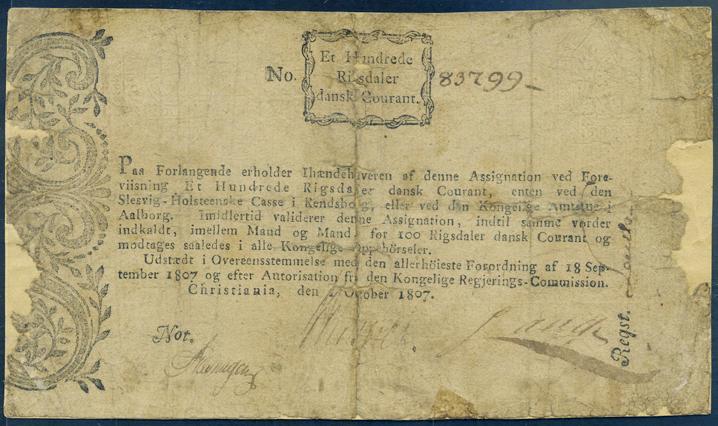 No.
Et Hundrede
Rigsdaler
dansk Courant.
83799
Paa Forlangende erholder Ihændehaveren af denne Assignation ved Fore-
viisning Et Hundrede Rigsdaler dansk Courant, enten ved den
Slesvig-Holsteenske Casse i Rendsborg, eller ved den Kongelige Amtstue i
Aalborg. Imidlertid validerer denne Assignation, indtil samme vorder
indkaldt, imellem Mand og Mand, for 100 Rigsdaler dansk Courant og
modtages saaledes i alle Kongelige Oppebörseler.
Udstædt i Overeensstemmelse med den allerhöieste Forordning af 18 Sep-
tember 1807 og efter Autorisation fra den Kongelige Regjerings-Commission.
Christiania, den October 1807.
Not.
Regst.